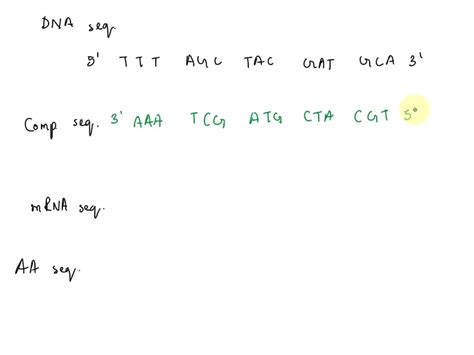 DNA seq
5' TTT AGC TAC GAT GCA 3'
Comp seq. 3' AAA TCG ATG CTA CGT 5'
mRNA seq.
AA seq.